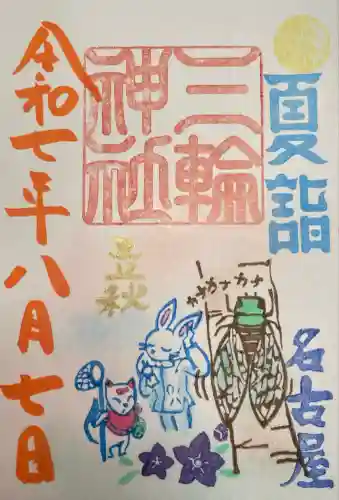 夏詣
三輪
神社
令和七年八月七日
立秋
カナカナカナ
名古屋